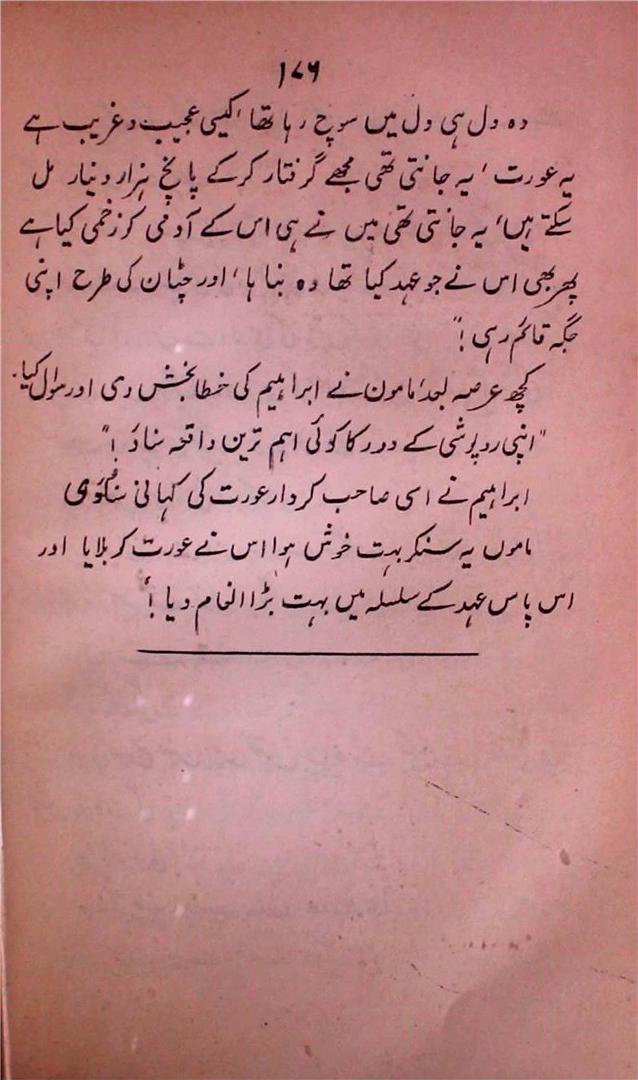 ۱۷۶
وہ دل ہی دل میں سوچ رہا تھا، کیسی عجیب و غریب ہے
یہ عورت، یہ جانتی تھی مجھے گرفتار کرکے پانچ ہزار دینار مل
سکتے ہیں، یہ جانتی تھی میں نے ہی اس کے آدمی کو زخمی کیا ہے
پھر بھی اس نے جو عہد کیا تھا وہ بنا ہا، اور چٹان کی طرح اپنی
جگہ قائم رہی!"
کچھ عرصہ بعد، مامون نے ابراہیم کی خطا بخش دی اور سوال کیا۔
"اپنی روپوشی کے دور کا کوئی اہم ترین واقعہ سناؤ!"
ابراہیم نے اسی صاحب کردار عورت کی کہانی
ماموں یہ سنکر بہت خوش ہوا اس نے عورت کو بلایا اور
اس پاس عہد کے سلسلہ میں بہت بڑا انعام دیا!"